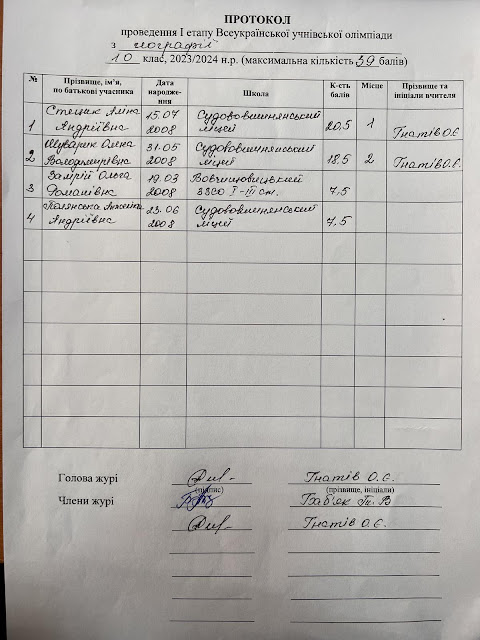 ПРОТОКОЛ
проведення І етапу Всеукраїнської учнівської олімпіади
з географії
10 клас, 2023/2024 н.р. (максимальна кількість 39 балів)
№ Прізвище, ім'я, по батькові учасника Дата народже-ння Школа К-сть балів Місце Прізвище та ініціали вчителя
1 Стецик Аліна Андріївна 15.07 2008 Судововишнянський ліцей 20,5 1 Гнатів О.Є.
2 Шуварик Олена Володимирівна 31.05 2008 Судововишнянський ліцей 18.5 2 Гнатів О.Є.
3 Замрій Ольга Романівна 19.03 2008 Вовчищовицький ЗЗСО І-ІІІ ст. 7,5
4 Полянська Анжеліка Андріївна 23.06 2008 Судововишнянський ліцей 7,5
Голова журі Гнатів О.Є.
(підпис) (прізвище, ініціали)
Члени журі Баб'як Т.В
Гнатів О.Є.